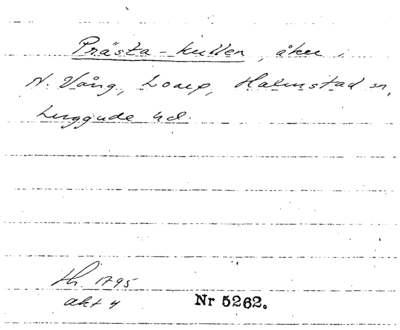 Prästa-kullen, åker,
N. Vång, Halmstad sn,
Luggude hd.
1795
akt 4
Nr 5262.